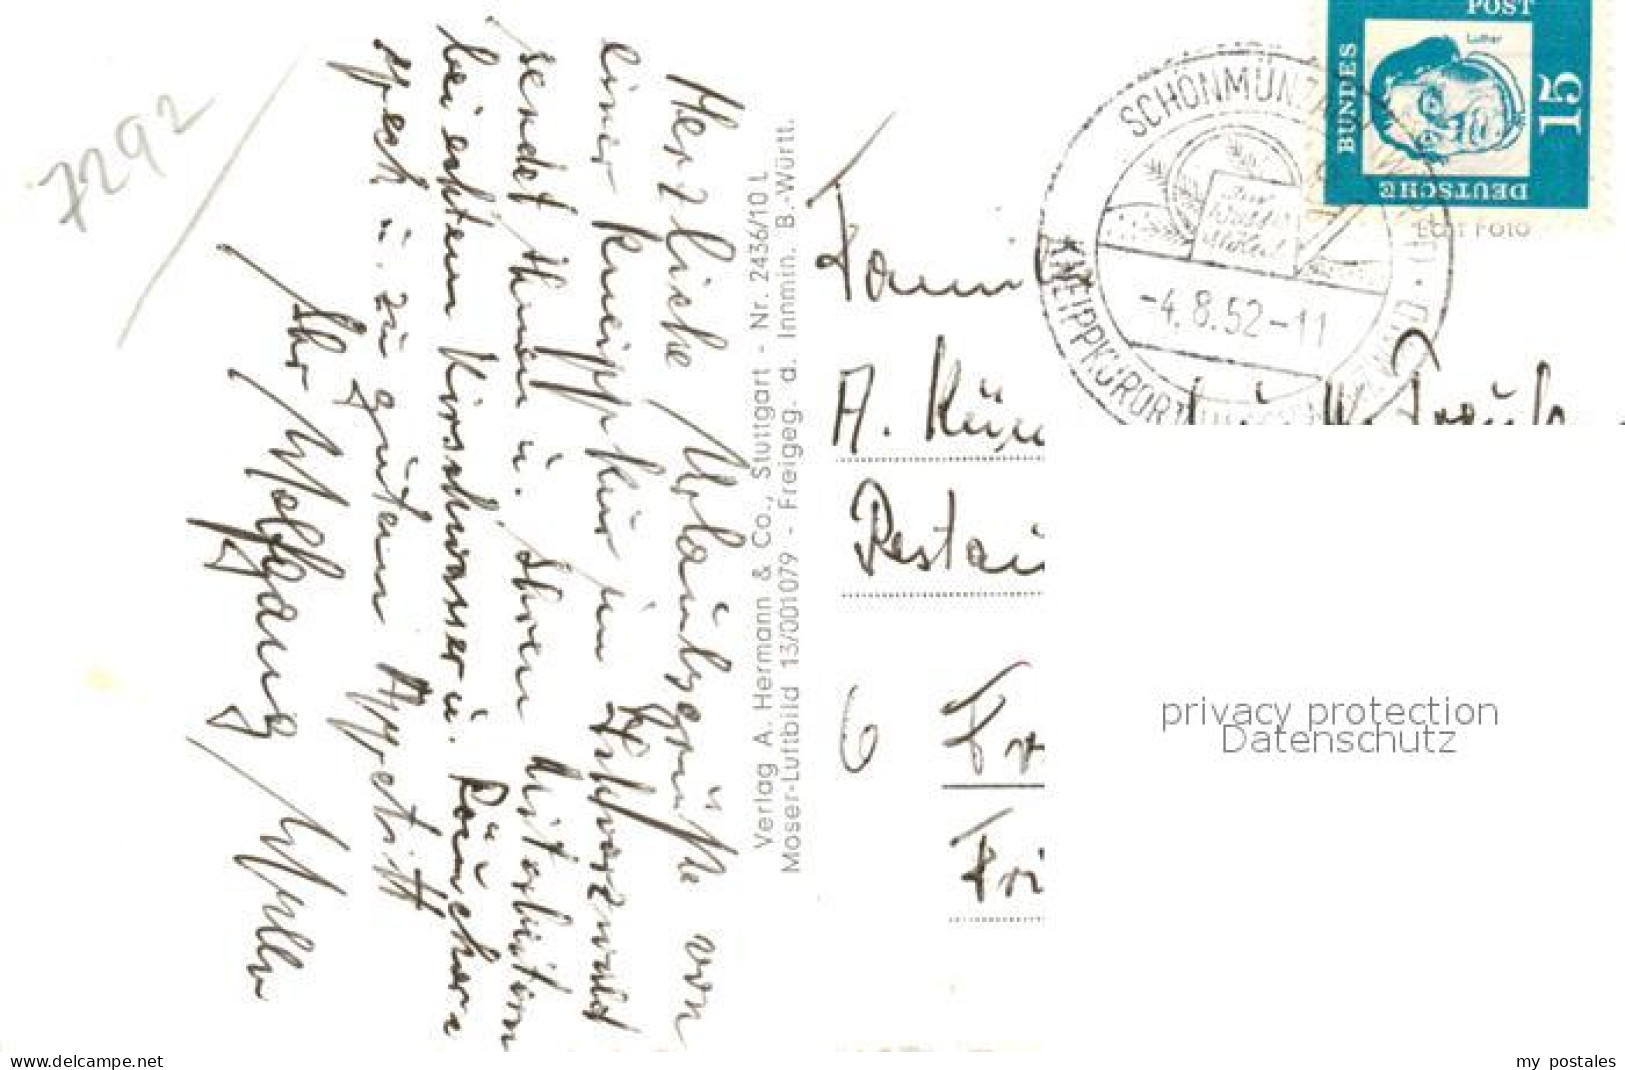 7292
Herzliche Urlaubsgrüße von
einer Kneippkur im Schwarzwald
sendet Ihnen u. Ihren Mitarbeitern
bei echtem Kirschwasser u. Räucher=
speck u. zu gutem Appetit
Ihr Wolfgang
Verlag A. Hermann & Co., Stuttgart - Nr. 2436/10 L
Moser-Luftbild 13/001079 - Freigeg. d. Innmin. B.-Württ.
POST
Luther
15
BUNDES
DEUTSCHE
Echt Foto
SCHÖNMÜNZ
-4.8.52-11
KNEIPPKURORT
Fami
A. Kü
Restau
6 Fr
Fri
privacy protection
Datenschutz
www.delcampe.net
my postales